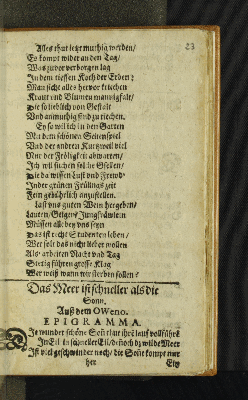 23
Alles thut jetzt muthig werden/
Es kompt wider an den Tag/
Was zuvor verborgen lag
In dem tieffen Loch der Erden:
Man sicht alles hervor kriechen
Kraut und Blumen mannigfalt/
Die so lieblich von Gestalt
Und anmuthig sind zu riechen.
Ey so wil ich in den Garten
Mit dem schönen Seitenspiel
Und der andren Kurzweil viel
Nur der Fröligkeit abwarten/
Ich wil suchen solche Gsellen/
Die da wissen Lust und Frewd/
In der grünen Frülings zeit
Fein gebührlich anzustellen.
Last uns guten Wein hergeben/
Lauten/Geigen/Jungfräwlein
Müssen alle bey uns seyn
Das ist recht Studenten leben/
Wer solt das nicht lieber wollen
Als arbeiten Nacht und Tag
Stetig führen grosse Klag
Wer weiß wann wir sterben sollen?
Das Meer ist schneller als die
Sonn.
Auß dem OWeno.
EPIGRAMMA.
Je wunder schöne Sonn lauf ihrē lauf vollführt
In Eil in schneller Eil/dennoch dz wilde Meer
Ist viel geschwinder noch: die Sonn kompt nur
her